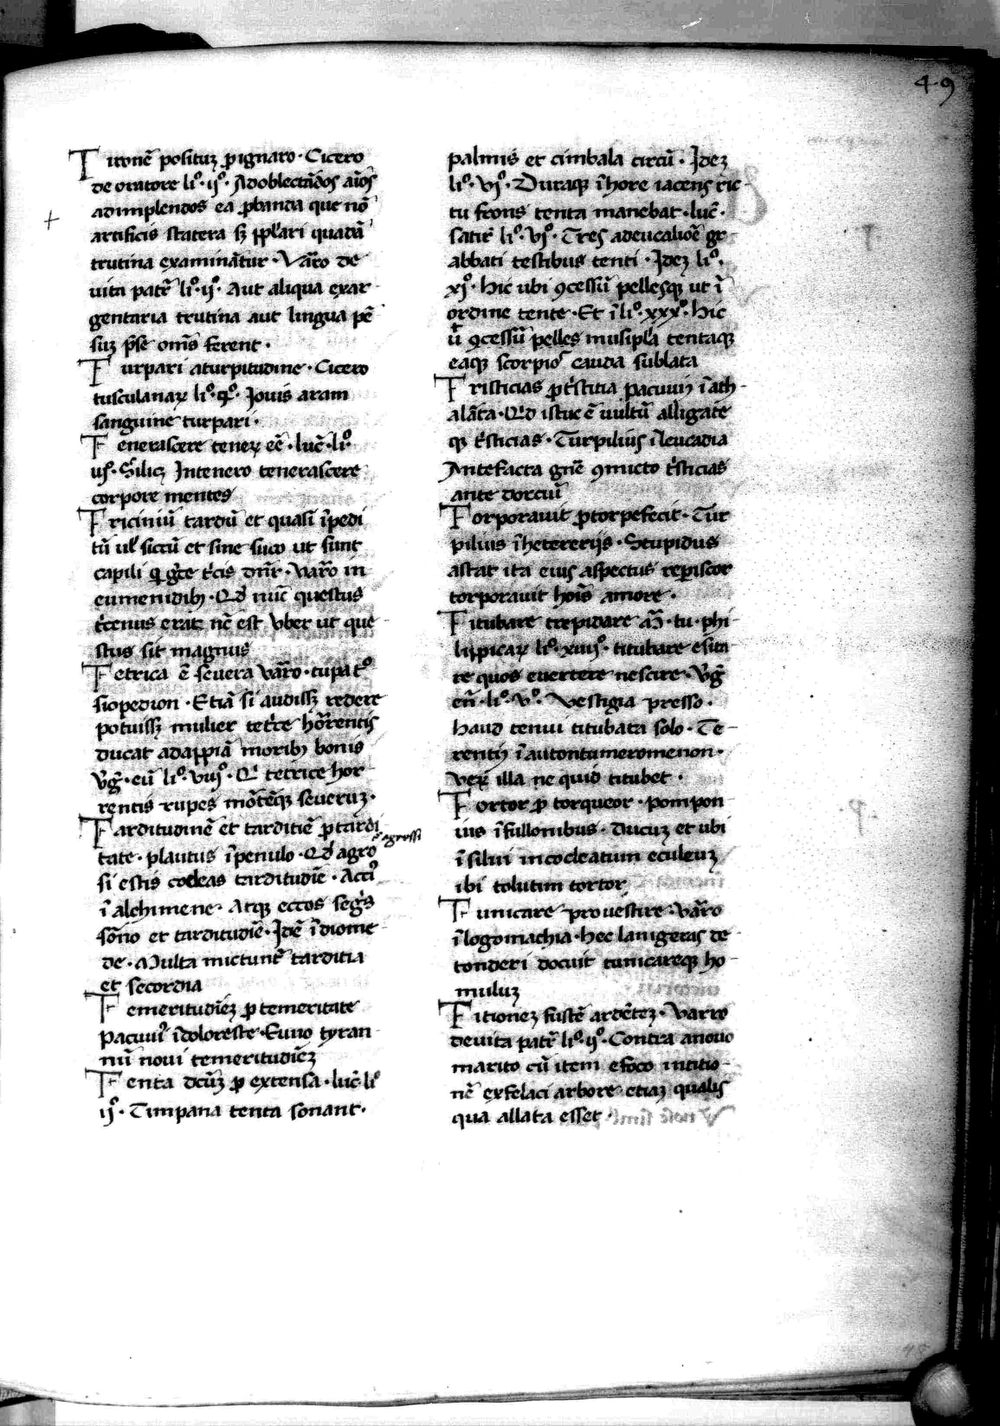 49
Tironē posituȝ ꝑignaro · Cicero
de oratore li°·ij°· Adoblectādos aīos
adimplendos ea ꝓbanda que nō
artificis statera sꝫ ppl̄ari quadā
trutina examinātur · Varō de
uita patꝝ li°·ij°· Aut aliqua exar
gentaria trutina aut lingua pē
suȝ p̄se om̄s ferent ·
Turpari aturpitudine · Cicero
tusculanaꝝ li°·q°· Jouis aram
sanguine turpari ·
Tenerascere teneꝝ eē · luc̄ · li°·
Intenero tenerascere
corpore mentes
Triciniū tardū et quasi īpedi
tū ul' siccū et sine suco ut sunt
capili dn̄r · Varō in
eumenidibꝫ · Qđ nūc questus
t'cenus erat nē est vber ut que
stus sit magnus
Tetrica ē seuera varō · cupat°
siopedion · Etiā si audissꝫ redere
potuissꝫ mulier tet'ce hōrrentis
ducat adappiā moribꝫ bonis
v̄g · eū li°·vııȷ°· Q' tetrice hor
rentis rupes mōtēqꝫ seueruȝ ·
Tarditudinē et tarditiē ꝓ tardi
tate · plautus īpenulo · Qđ agro egrossi
si estis cocleas tarditudīe · Acci'
ī alchimene · Atqꝫ eccos segīs
sōno et tarditudīe · Jdē īdiome
de · Multa mictunt' tarditia
et secordia
Temeritudīeȝ ꝓ temeritate
Pacuui' īdoloreste · Euno tyran
nū noui temeritudīeȝ
Tenta dc̄uȝ ꝓ extensa · luc̄ · li°
ij°· Timpana tenta sonant ·
palmis et cimbala circū · Jdeȝ
li°·vj°· Duraqꝫ īhore iacens ric
tu frons tenta manebat · luc̄ ·
satir̄ li°·vj°· Tres adeucaliōe gr
abbati testibus tenti · Jdeȝ li°·
xj°· Hic ubi ꝯcessū pellesqꝫ ut ī
ordine tente · Et īli°·xxx°· Hic
ū ꝯcessū pelles musipl'a tentaqꝫ
eaqꝫ scorpio' cauda sublata
Tristicias ꝓt'stitia pacuuȷ īath
alāta · Qđ istuc ē uultū alligate
qꝫ t'sticias · Turpilius īleucadia
Antefacta gnē ꝯmicto t'sticias
ante dorciū
Torporauit ꝓtorpefecit · Tur
pilius īhetererijs · Stupidus
astat ita eius aspectus reꝑiscor
torporauit hoīs amore ·
Titubare trepidare M̄ · tu · phi
lippicaꝝ li°·xııȷ°· titubare esita
re quos euertere nescire · v̄g
en̄ · li°·v°· Vestigia presso ·
Haud tenui titubata solo · Te
rentiȷ īautontumeromenon ·
Veꝝ illa ne quid titubet ·
Tortor ꝓ torqueor · pompon
ius īfullonibus · Ducuȝ et ubi
īsilui incocleatum eculeuȝ
ibi tolutim tortor
Tunicare pro uestire · Varō
īlogomachia · Hec lanigeras de
tonderi docuit tunicareqꝫ ho
muluȝ
Titioneȝ fustē ard'teȝ · Varro
deuita patꝝ li°·ij°· Contra anouo
marito cū item efoco intitio
nē exfelaci arbore etiaȝ qualis
qua allata esset ·